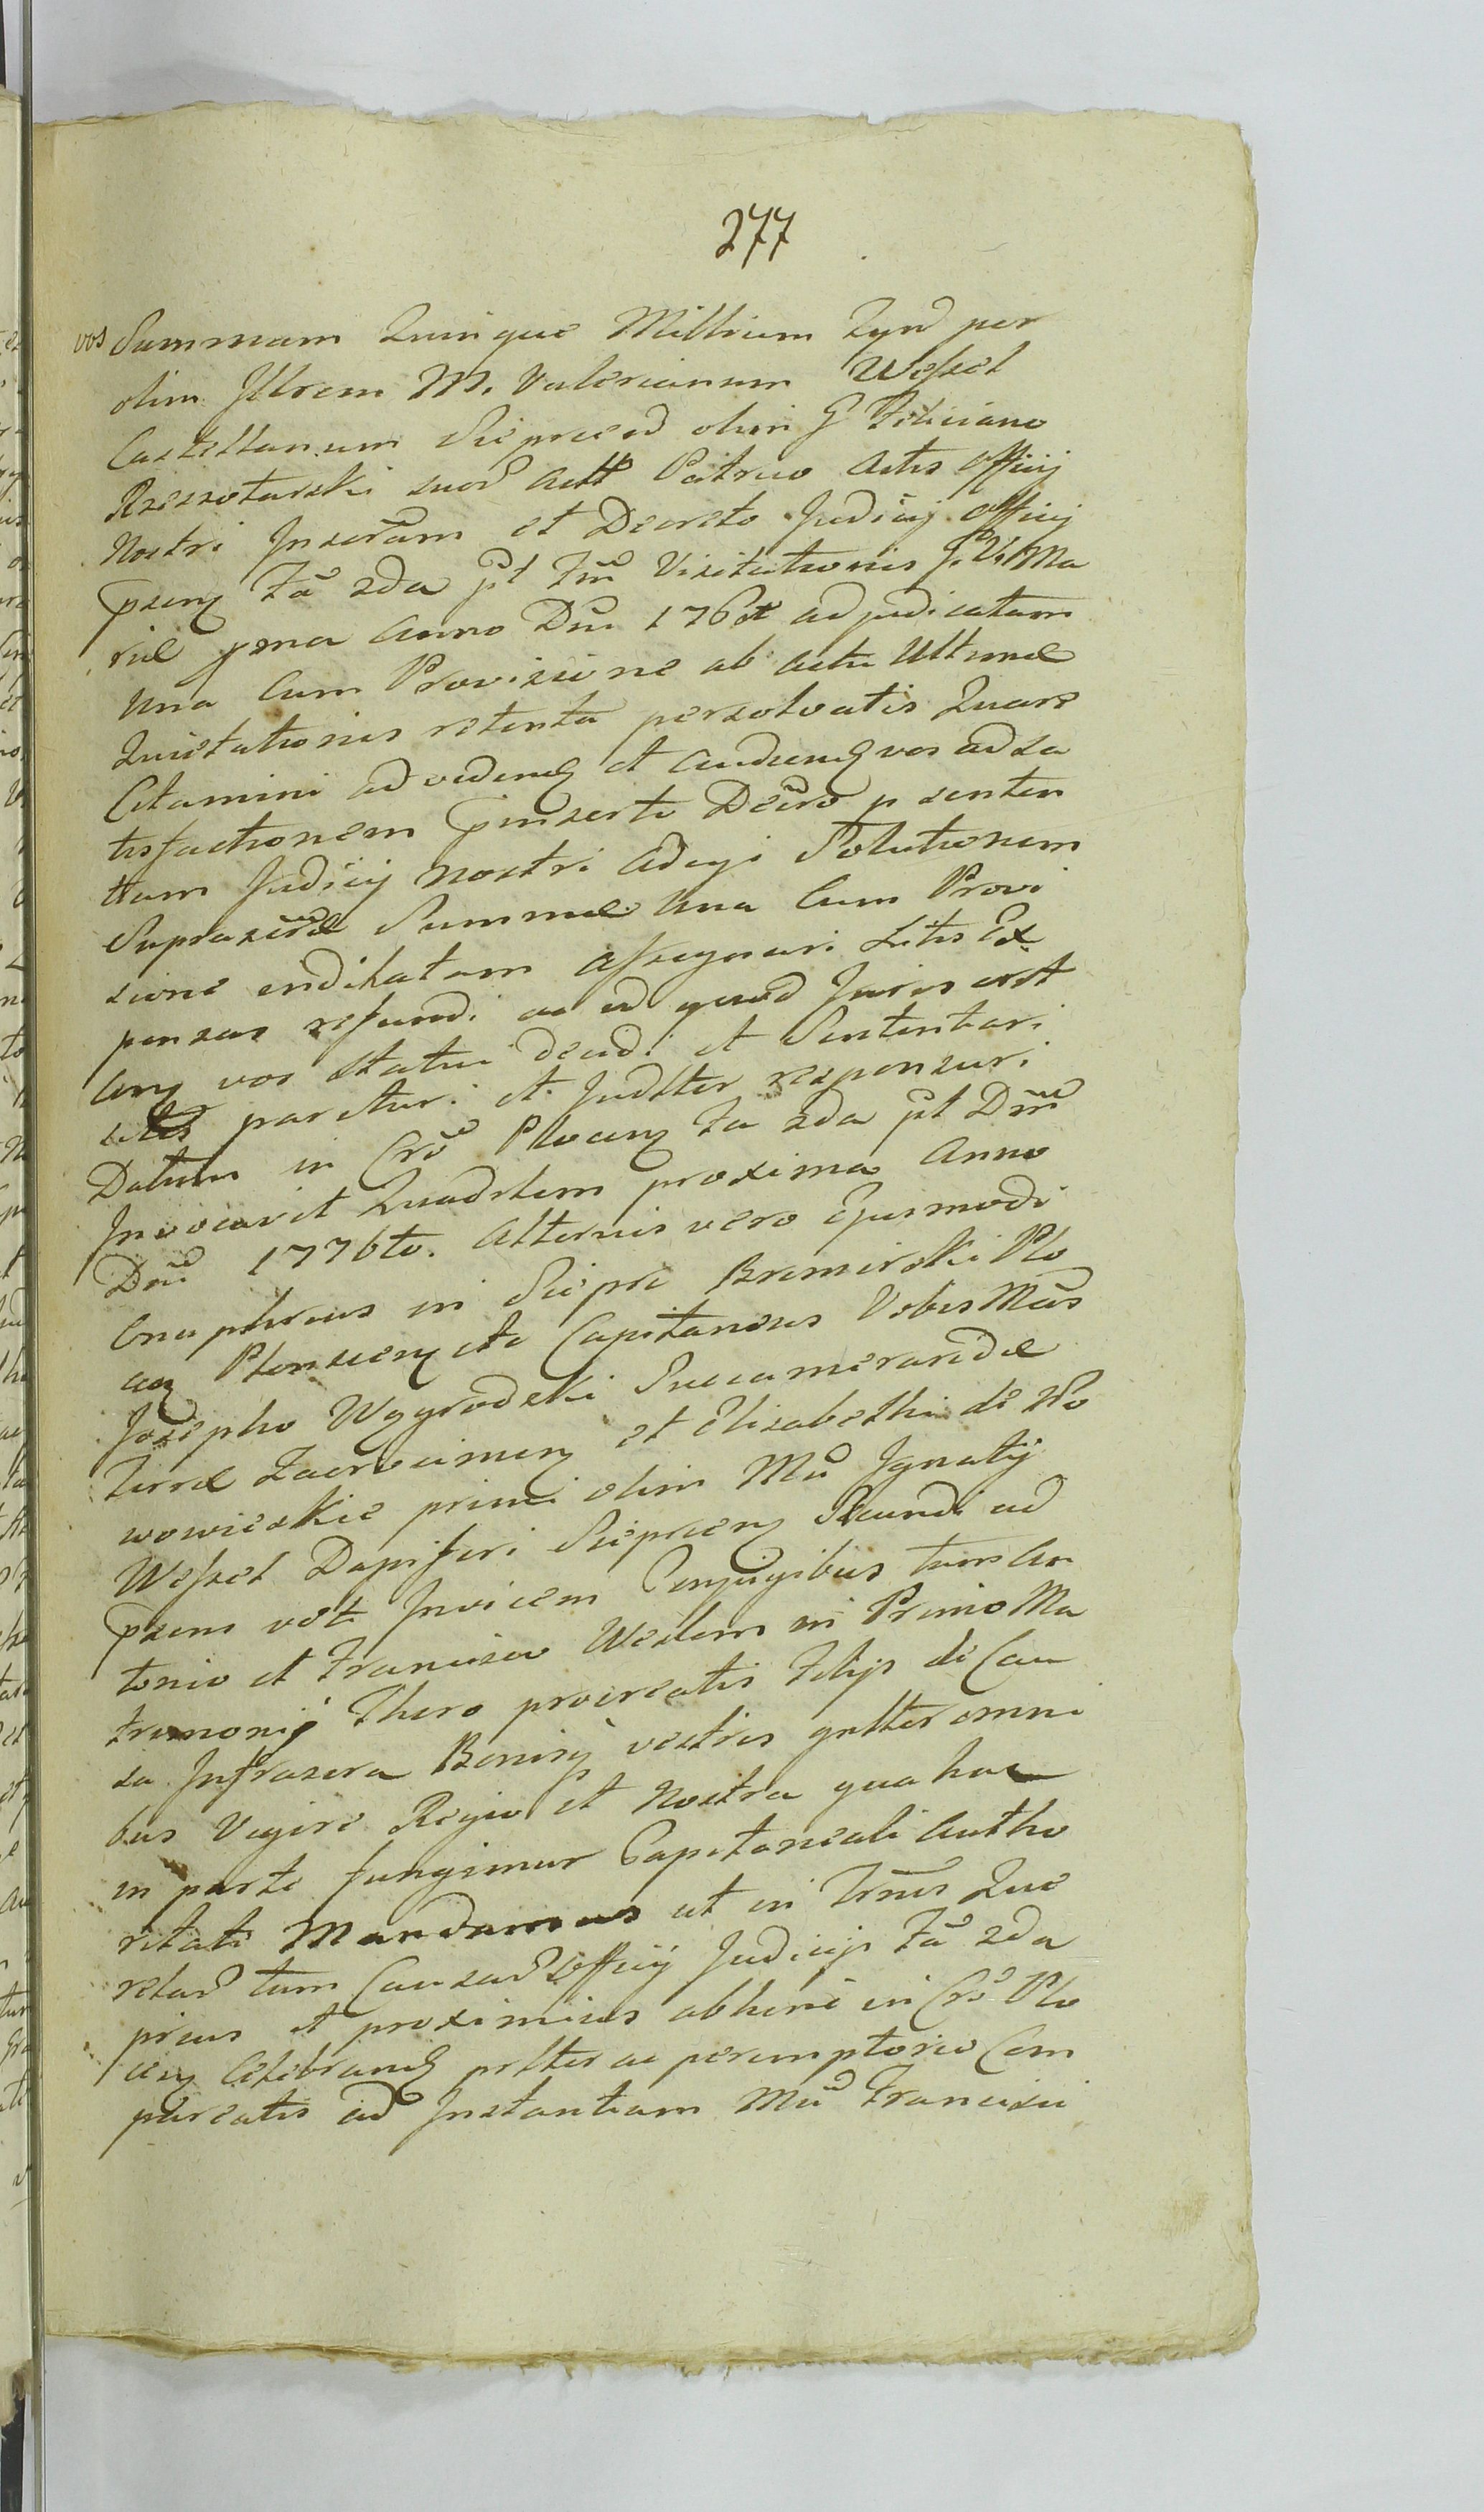 277
vos Summam Quinque Millium Zyn̄ð per
olim Jllrem M. Valerianum Wessel
Castellanum Sieprceñ olim G Feliciano
Rzeszotarski suoR̃ actt Patruo Actis Officij
Nostri Jnscr̃am et Decreto Judicij Officij
p̃sens Fã 2da p̃t Fm̃ Visitationis B. V. Ma
riæ pma Anno Dni 176 adjudicatam
Una Cum Provisione ab actu Ultimæ
Quietationis retenta persolvatis Quare
Citamini ad videnđ et audienđ vos ad sa
tisfactionem p̃inserti Decrõ p senten
tiam Judicij Nostri adigi Solutionem
Suprascr̃æ Summæ Una Cum Provi
sione indilatam assignari Litis Ex
pensas refundi ac id quod Juris erit
Circa vos statui decidi et Sententiari
parituri et Judlter responsuri
Datum in Crõ Plocens Fa 2da p̃t Dm̃
Jnvocavit Quadrlem proxima Anno
Dni 1776to. Alternis vero Ejusmodi
Onuphrius in Sieprc Bromirski Plo
cens Plonscens etc Capitaneus Vobis Mcis
Josepho Wygrodzki Succamerandæ
Terræ Zacrocimens et Elisabethæ de No
wowieskie primi olim Mci Jgnatij
Wessel Dapiferi Sieprcens Secundi ad
p̃sens voti Jnvicem Conjugibus tum An
tonio et Francisco Weslom in Primo Ma
trimonij Thoro procreatis Filijs de Cau
sa Jnfrascra Bonisq vestris gnlter omni
bus Vigore Regio et Nostra qua hac
in parte fungimur Capitaneali Autho
ritate Mandamus ut in Trnis Que
relaR̃ tum CausaR̃ Officij Judicijs Fã 2da
prius et proximius abhinc in Crõ Plo
cens Celebranđ prlter ac peremptorie Com
pareatis ad Jnstantiam Mci Francisci